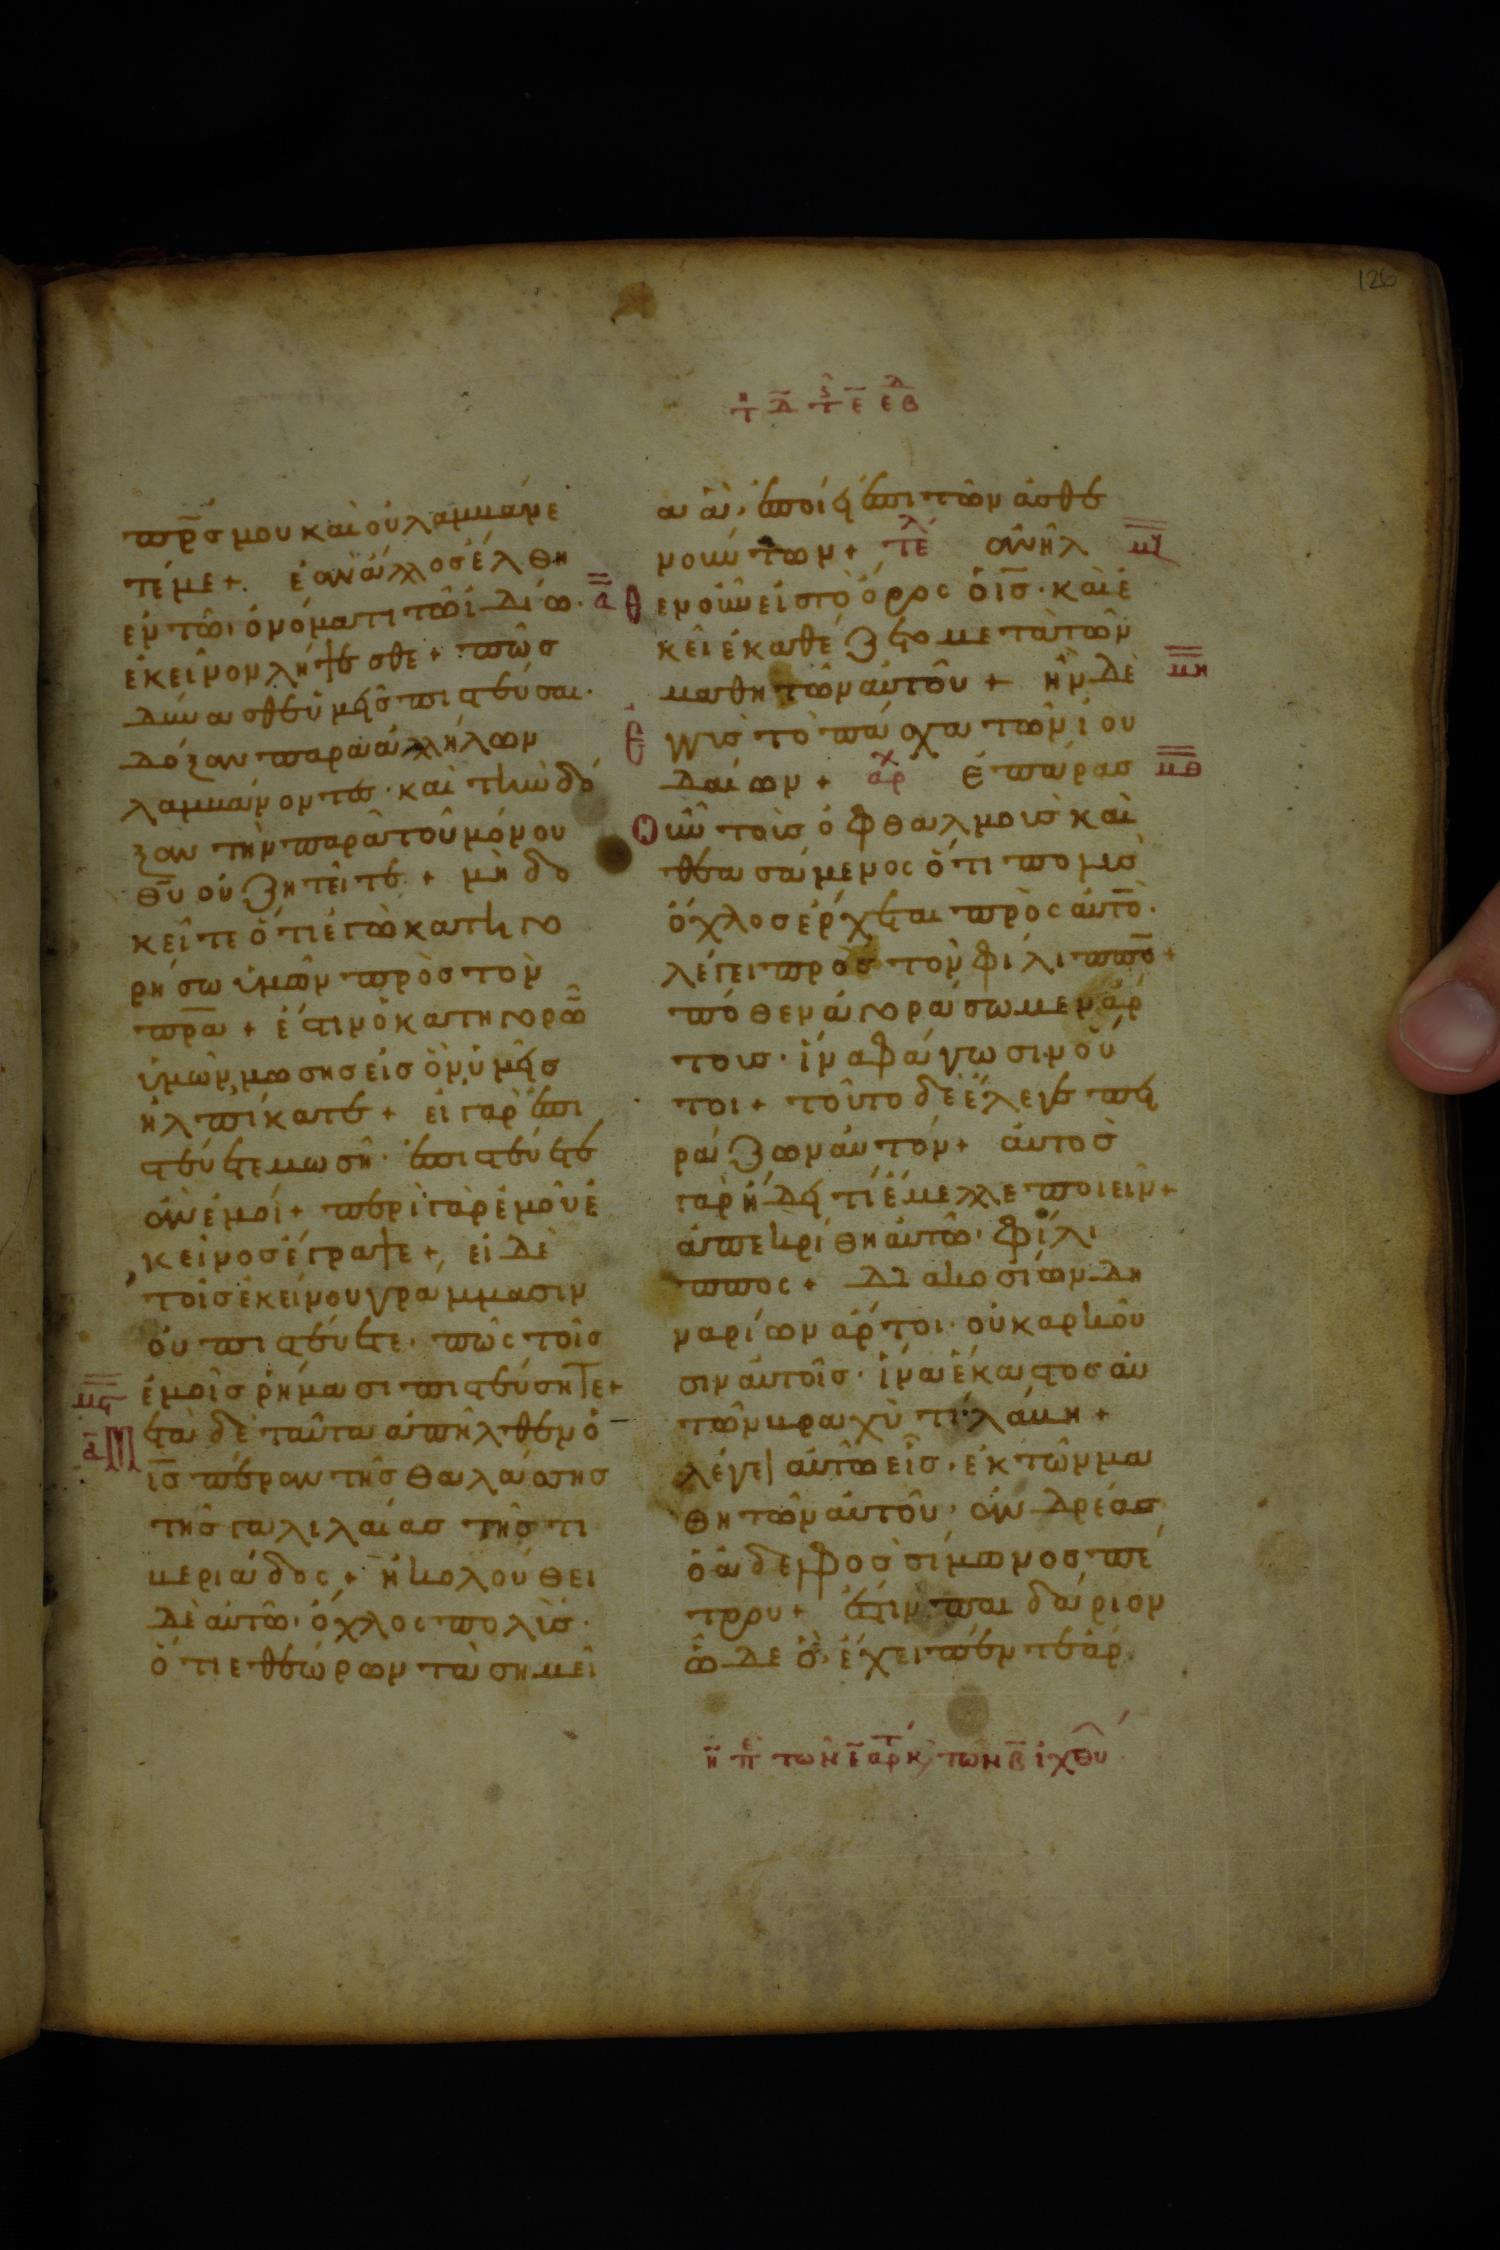 126
πρ̅ς μου και οὐ λαμμάνε
τέ με + ἐὰν ἄλλος ἔλθη
ἐν τῶ ὀνόματι τῶ ἰδίω·
ἐκεῖνον λήψεσθε + πῶς
δύνασθε ὑμεῖς πιστεῦσαι·
δόξαν παρὰ ἀλλήλων
λαμμάνοντες· καὶ τὴν δό
ξαν τὴν παρὰ τοῦ μόνου
θ̅υ οὐ ζητεῖτε + μὴ δο
κεῖτε ὅτι ἐγὼ κατηγο
ρήσω ὑμῶν πρὸς τὸν
πρ̅α + ἔστιν ὁ κατηγορῶ̅
ὑμῶν, μωσης εἰς ὃν ὑμεῖς
ἠλπίκατε + εἰ γὰρ ἐπι
στεύετε μωσῆ· ἐπιστεύετε
ἂν ἐμοί + περὶ γὰρ ἐμοῦ ἐ
κεῖνος ἔγραψε + εἰ δὲ
τοῖς ἐκείνου γράμμασιν
οὐ πιστεύετε· πῶς τοῖς
ἐμοῖς ῥήμασι πιστεύσητε +
μϛ
α̅ Μετὰ δὲ ταῦτα ἀπῆλθεν ὁ
ι̅ς πέραν τῆς θαλάσσης
τῆς γαλιλαίας τῆς τι
μεριάδος + ἠκολούθει
δὲ αὐτῶ· ὄχλος πολὺς·
ὅτι ἐθεώρων τὰ σημεῖ
α ἃ· ἐποίει ἐπὶ τῶν ἀσθε
νούντων + τὲλ ἀνῆλ μζ
α̅ θεν οὖν εἰς τὸ ὄρος ὁ ι̅ς· καὶ ἐ
κεῖ ἐκαθέζετο μετὰ τῶν
μαθητῶν αὐτοῦ + ἦν δὲ μη
ἐγγὺς τὸ πάσχα τῶν ἰου
δαίων + ἀρχ ἐπάρας μθ
οὖν τοὺς ὀφθαλμοὺς καὶ
θεασάμενος ὅτι πολὺς
ὄχλος ἔρχεται πρὸς αὐτο̅·
λέγει πρὸς τὸν φίλιππο̅ +
πόθεν ἀγοράσωμεν ἄρ
τους· ἵνα φάγωσιν οὗ
τοι + τοῦτο δὲ ἔλεγε πει
ράζων αὐτόν + αὐτὸς
γὰρ ἤδει τί ἔμελλε ποιεῖν +
ἀπεκρίθη αὐτῶ· φίλι
ππος + διακοσίων δη
ναρίων ἄρτοι· οὐκ αρκοῦ
σιν αὐτοῖς· ἵνα ἕκαστος αὐ
τῶν βραχὺ τι· λάμη +
λέγει αὐτῶ εἷς· ἐκ τῶν μα
θητῶν αὐτοῦ· ἀνδρέας
ὁ ἀδελφὸς σίμωνος πέ
τρου + ἔστιν παιδάριον
ὧδε ὃ· ἔχει πέντε ἄρ
η̅ π ε τῶν ε̅ ἄρτ κ, τῶν β̅ ἰχθύ